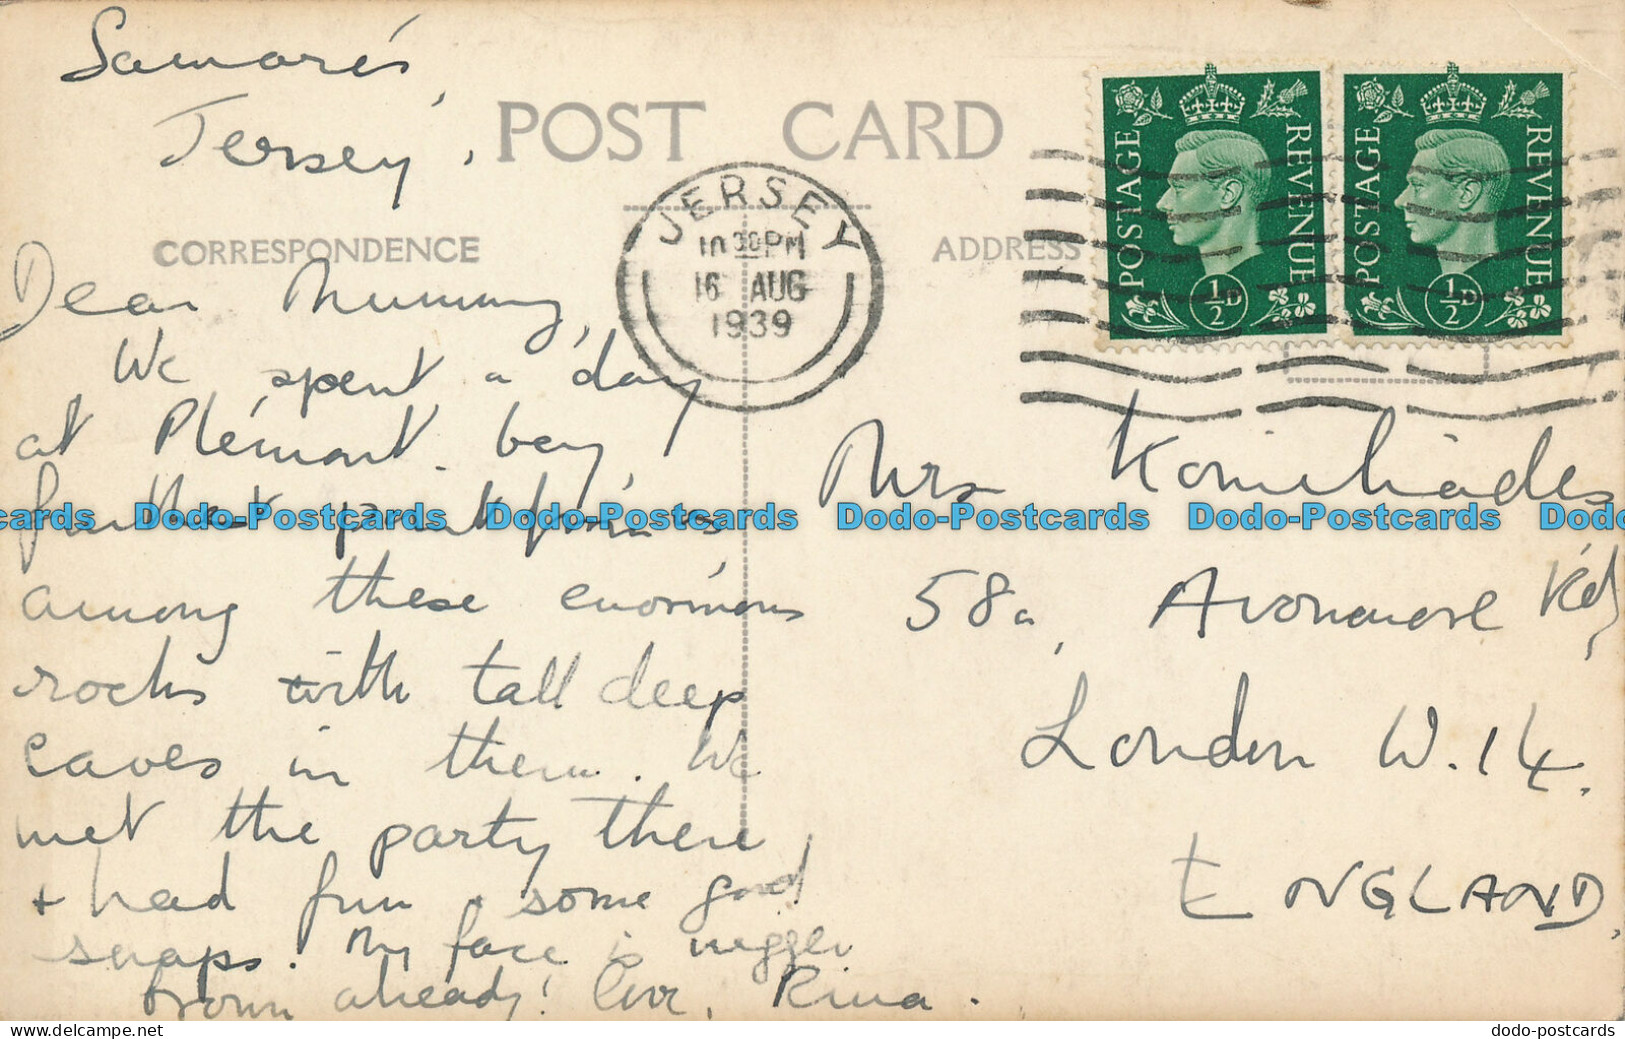 Samarés,
Jersey.
POST CARD
CORRESPONDENCE
ADDRESS
JERSEY
10 30 PM
16 AUG
1939
POSTAGE REVENUE
½D
POSTAGE REVENUE
½D
Dear Mummy,
We spent a day
at Plémont bay,
further
among these enormous
rocks with tall deep
caves in them. We
met the party there
+ had fun + some good
snaps. My face is nigger
brown already! Love, Rina.
Mrs Komichiades
58a, Avonmore Rd,
London W.14.
ENGLAND.
cards Dodo-Postcards Dodo-Postcards Dodo-Postcards Dodo-Postcards Dodo
delcampe.net
dodo-postcards